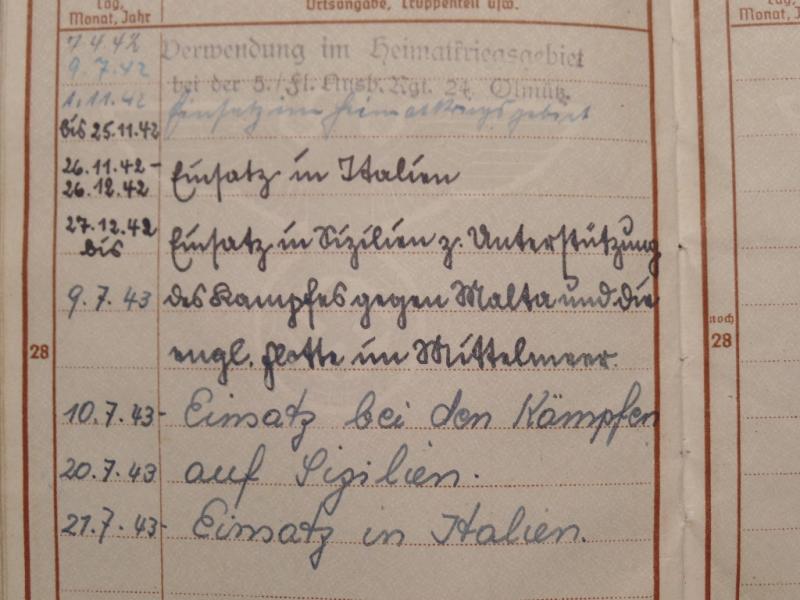 Tag, Monat, Jahr
Ortsangabe, Truppenteil usw.
7.4.42 Verwendung im Heimatkriegsgebiet
9.7.42 bei der 5./Fl. Ausb. Rgt. 24 Olmütz.
1.11.42 Einsatz im Heimatkriegsgebiet
bis 25.11.42
26.11.42 - Einsatz in Italien
26.12.42
27.12.42 Einsatz in Sizilien z. Unterstützung
bis
9.7.43 des Kampfes gegen Malta und die
28 engl. Flotte im Mittelmeer.
10.7.43- Einsatz bei den Kämpfen
20.7.43 auf Sizilien.
21.7.43- Einsatz in Italien.
Monat, J
noch
28